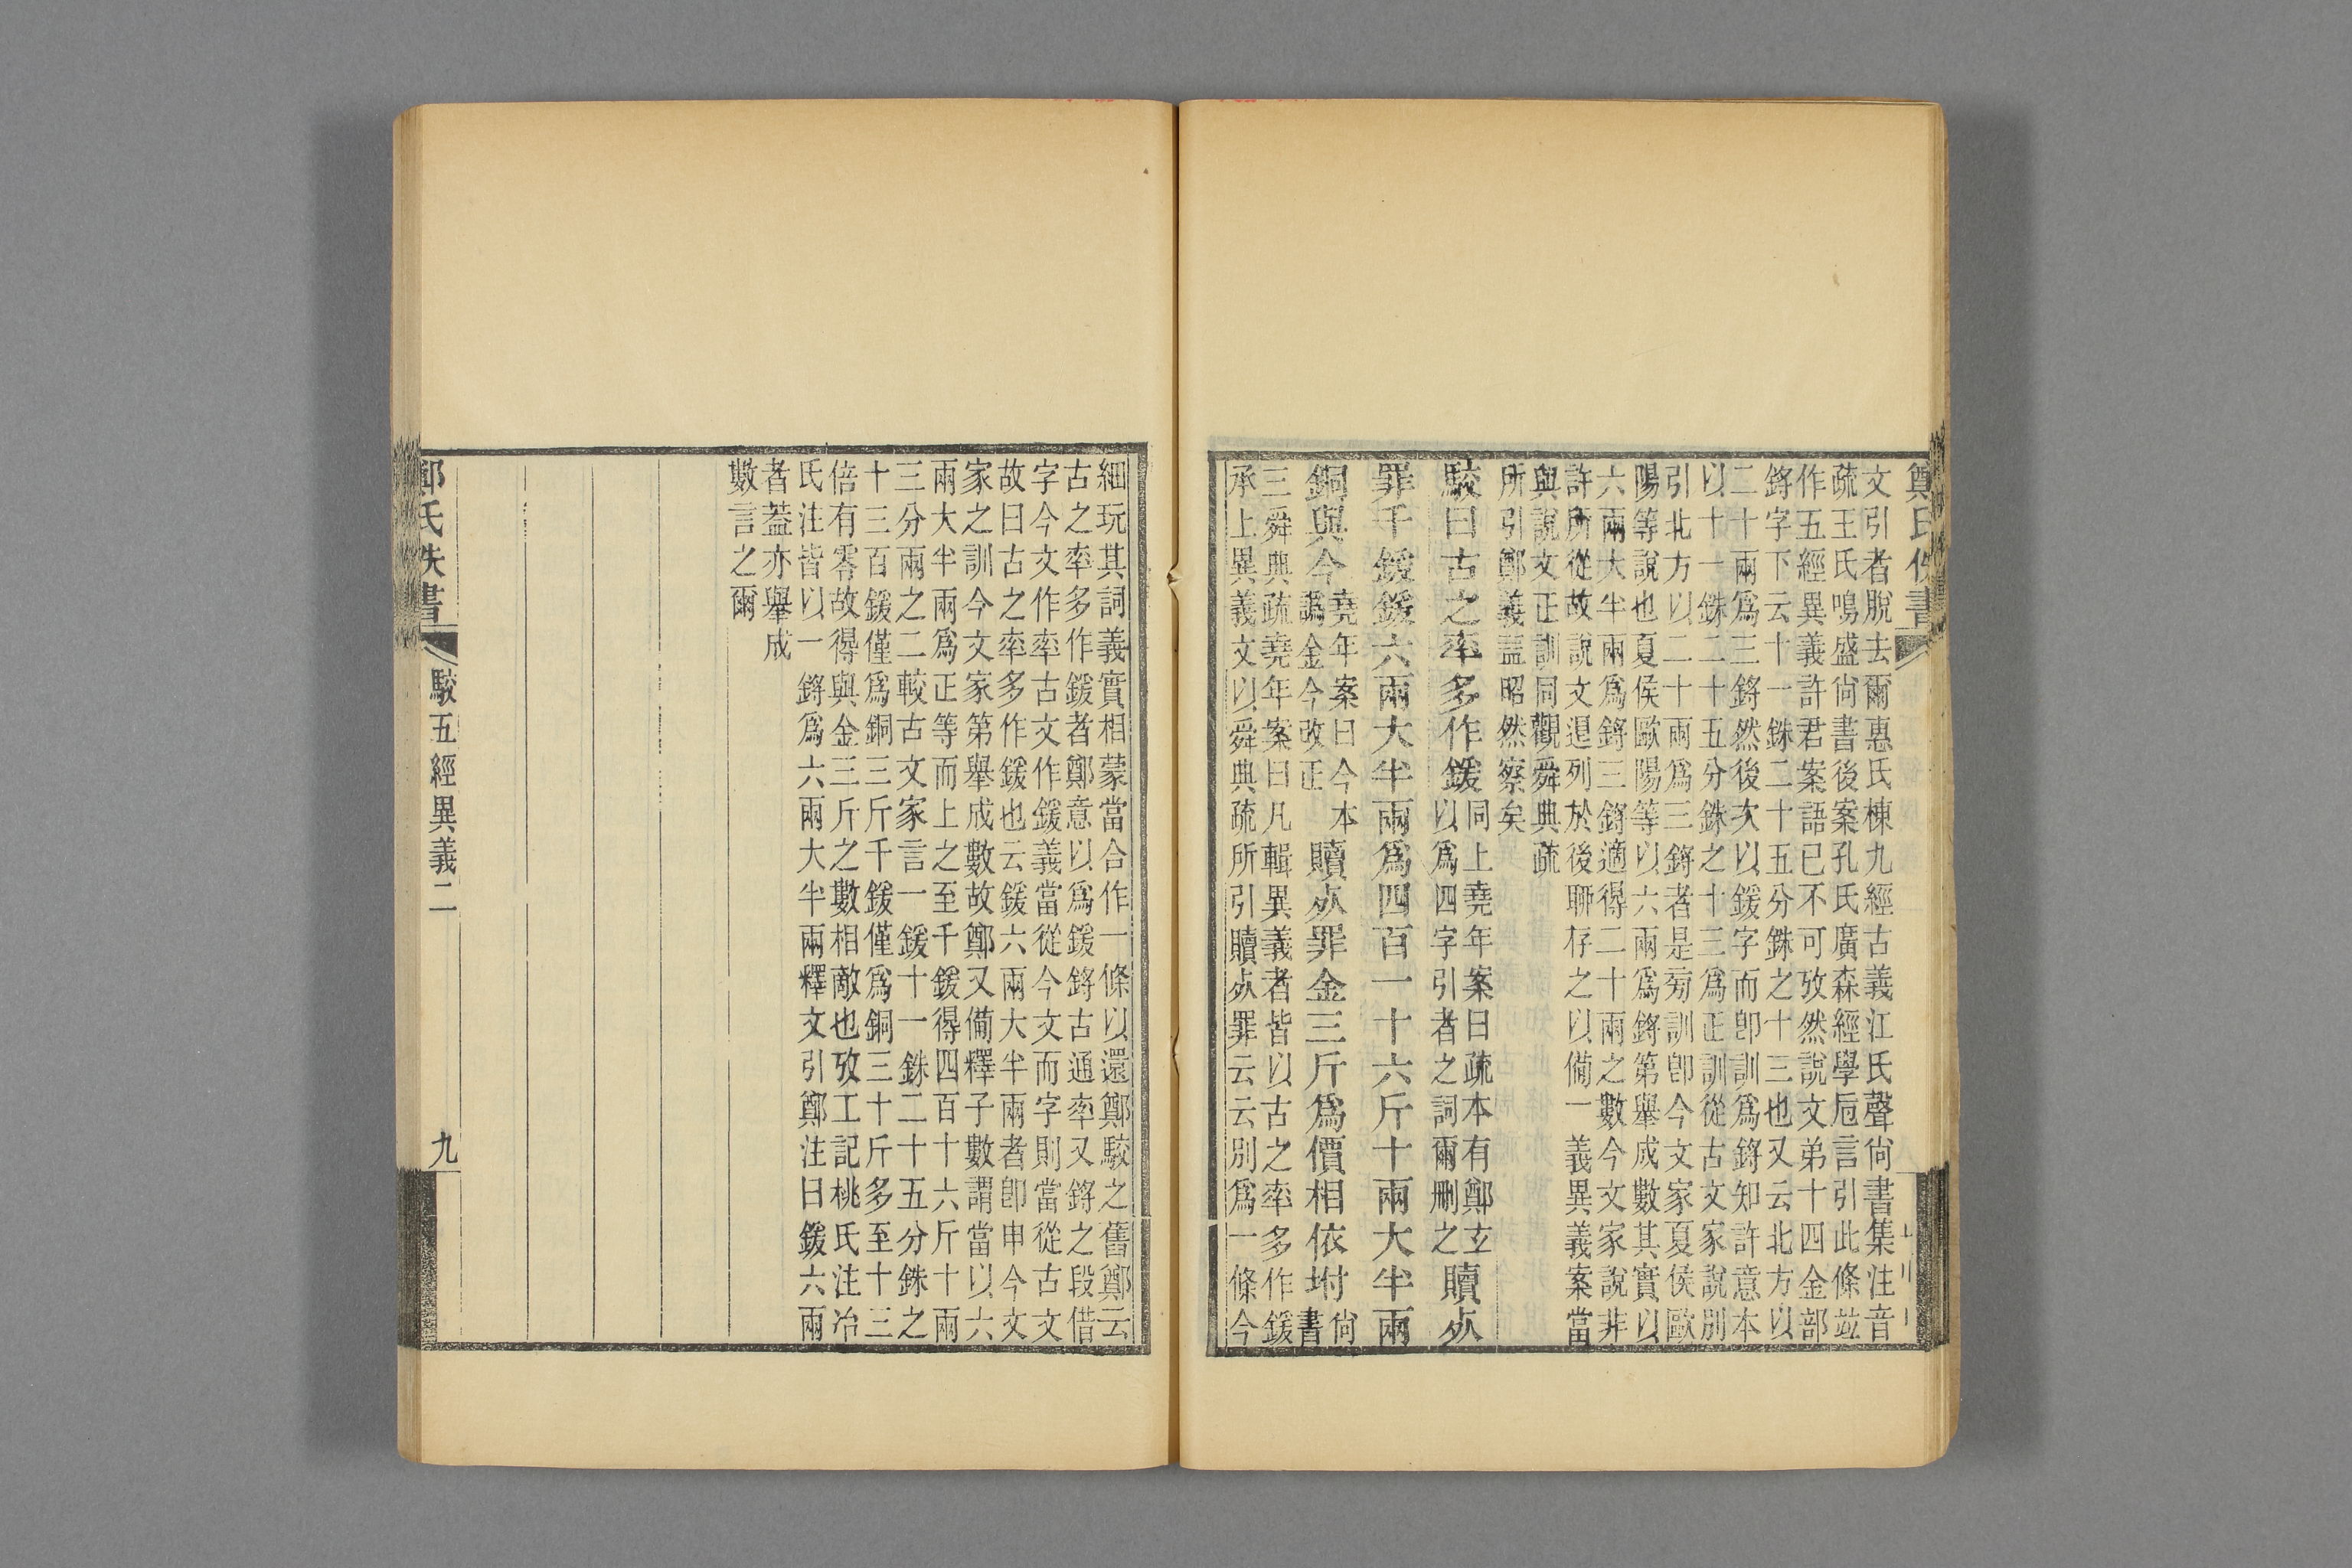 鄭氏佚書
文引者脫去爾惠氏棟九經古義江氏聲尙書集注音
疏王氏鳴盛尙書後案孔氏廣森經學卮言引此條竝
作五經異義許君案語已不可攷然說文弟十四金部
鋝字下云十一銖二十五分銖之十三也又云北方以
二十兩爲三鋝然後次以鍰字而卽訓爲鋝知許意本
以十一銖二十五分銖之十三爲正訓從古文家說別
引北方以二十兩爲三鋝者是旁訓卽今文家夏侯歐
陽等說也夏侯歐陽等以六兩爲鋝第舉成數其實以
六兩大半兩爲鋝三鋝適得二十兩之數今文家說非
許所從故說文退列於後聊存之以備一義異義案當
與說文正訓同觀舜典疏
所引鄭義蓋昭然察矣
駮曰古之率多作鍰
同上堯年案曰疏本有鄭玄
以爲四字引者之詞爾刪之
贖𣦸
罪千鍰鍰六兩大半兩爲四百一十六斤十兩大半兩
銅與今
堯年案曰今本
譌金今改正
贖𣦸罪金三斤爲價相依坿
尙
書
三舜典疏堯年案曰凡輯異義者皆以古之率多作鍰
承上異義文以舜典疏所引贖𣦸罪云云別爲一條今
細玩其詞義實相蒙當合作一條以還鄭駮之舊鄭云
古之率多作鍰者鄭意以爲鍰鋝古通率又鋝之段借
字今文作率古文作鍰義當從今文而字則當從古文
故曰古之率多作鍰也云鍰六兩大半兩者卽申今文
家之訓今文家第舉成數故鄭又備釋子數謂當以六
兩大半兩爲正等而上之至千鍰得四百十六斤十兩
三分兩之二較古文家言一鍰十一銖二十五分銖之
十三百鍰僅爲銅三斤千鍰僅爲銅三十斤多至十三
倍有零故得與金三斤之數相敵也攷工記桃氏注冶
氏注皆以一鋝爲六兩大半兩釋文引鄭注曰鍰六兩
者蓋亦舉成
數言之爾
鄭氏佚書
駮五經異義二
九